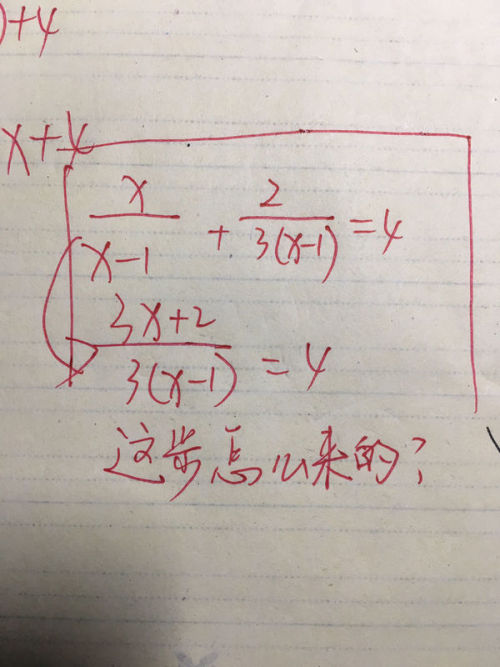 )+4
x+4
x/(x-1) + 2/(3(x-1)) = 4
(3x+2)/(3(x-1)) = 4
这步怎么来的?